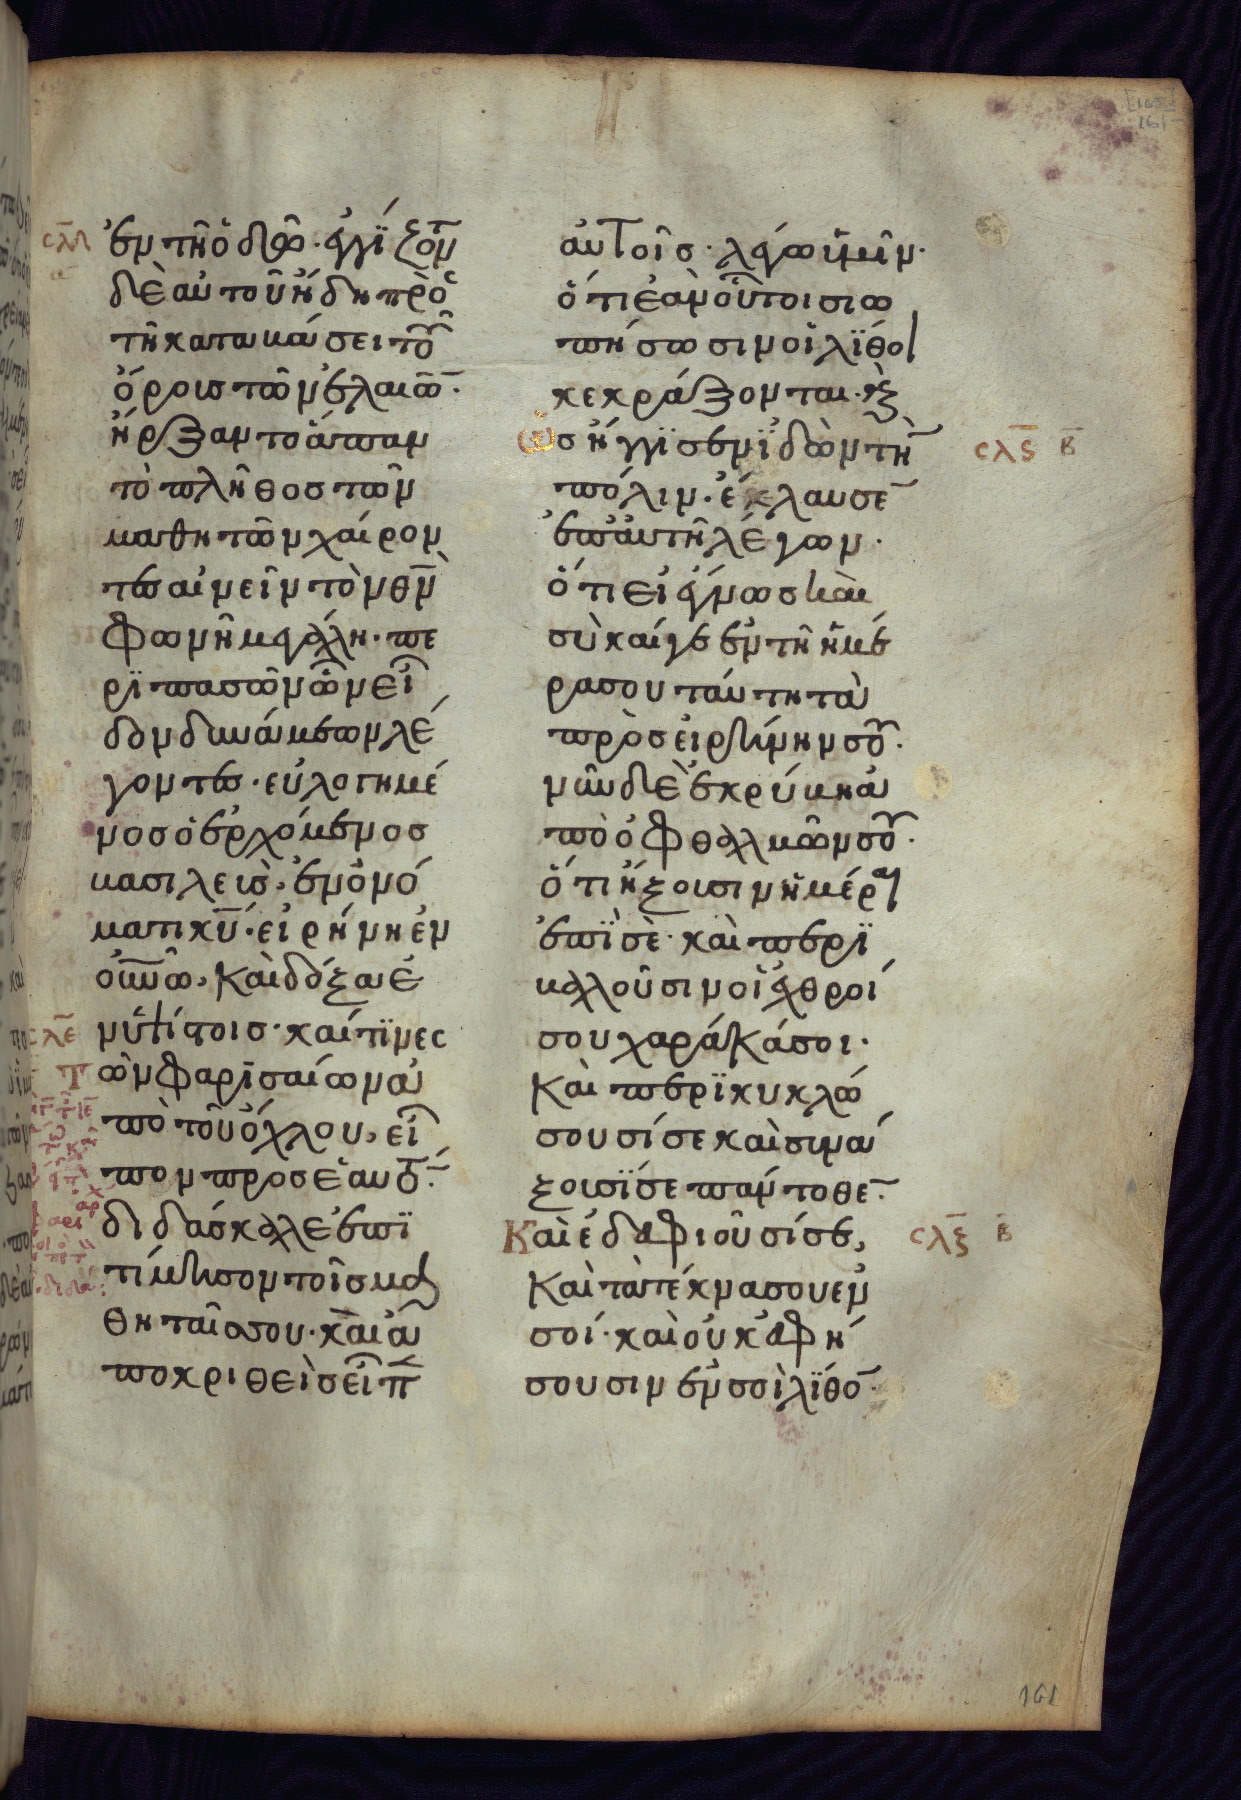 σλδ
ἐν τῆ ὁδῶ· ἐγγίζοντ
δὲ αὐτοῦ ἤδη πρὸς
τῆ καταβάσει τοῦ
ὄρους τῶν ἐλαιῶ·
ἤρξαντο ἅπαν
τὸ πλῆθος τῶν
μαθητῶν χαίρον
τες αἰνεῖν τὸν θν
φωνῆ μεγάλη· πε
ρὶ πασῶν ὧν εἶ
δον δυνάμεων λέ
γοντες· εὐλογημέ
νος ὁ ἐρχόμενος
βασιλεὺς, ἐν ὀνό
ματι κυ· εἰρήνη ἐν
οὐνῶ, καὶ δόξα ἐ
σλε
ν ὑψίστοις· καί τϊνες
Τῶν φαρισαίων ἀ
πὸ τοῦ ὄχλου, εἶ
πον προς ἑαυτ·
διδάσκαλε ἐπϊ
τίμησον τοῖς μα
θηταῖς σου· καὶ ἀ
ποκριθεὶς εἶπ
αὐτοῖς· λέγω ὑμῖν·
ὅτι ἐὰν οὗτοι σιω
πήσωσιν οἱ λϊθοι
κεκράξονται· κὲ
ὡς ἤγγϊσεν ϊδὼν τὴ
σλς β
πόλιν· ἔκλαυσε
ἐπ αὐτῆ λέγων·
ὅτι εἰ ἔγνως καὶ
σὺ καίγε ἐν τῆ ἡμέ
ρα σου ταύτη τὰ
πρὸς εἰρήνην σου·
νῦν δὲ ἐκρύβη ἀ
πὸ ὀφθαλμῶν σου·
ὅτι ἥξουσιν ἡμέραι
ἐπϊ σὲ· καὶ περϊ
βαλοῦσιν οἱ ἐχθροί
σου χαράκά σοι·
Καὶ περϊκυκλώ
σουσί σε καὶ συνά
ξουσϊ σε πάντοθε·
Καὶ ἐδαφιοῦσί σε,
σλξ β
Καὶ τὰ τέκνα σου ἐν
σοί· καὶ οὐκ ἀφή
σουσιν ἐν σοὶ λϊθο·
161